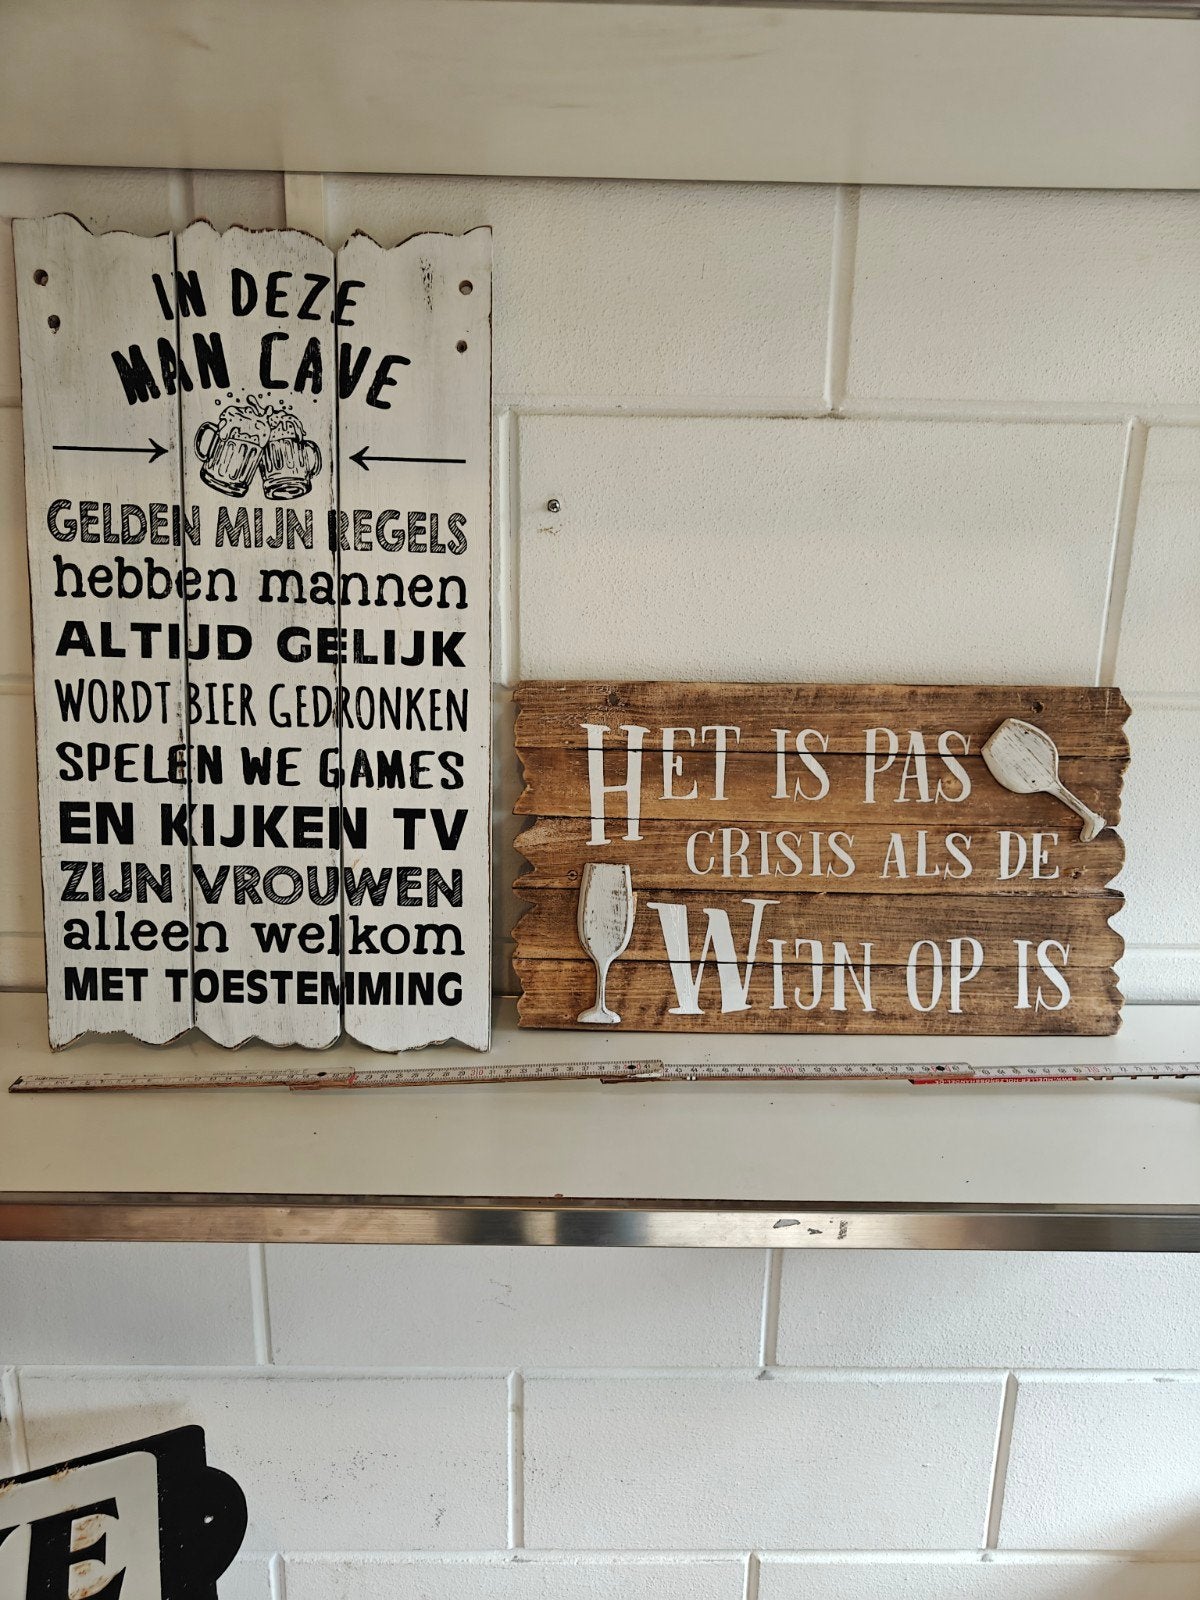 IN DEZE
MAN CAVE
GELDEN MIJN REGELS
hebben mannen
ALTIJD GELIJK
WORDT BIER GEDRONKEN
SPELEN WE GAMES
EN KIJKEN TV
ZIJN VROUWEN
alleen welkom
MET TOESTEMMING
HET IS PAS
CRISIS ALS DE
WIJN OP IS
E